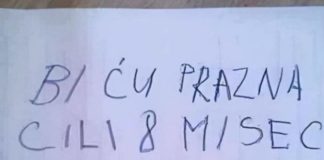 BI ĆU PRAZNA
CILI 8 MISEC